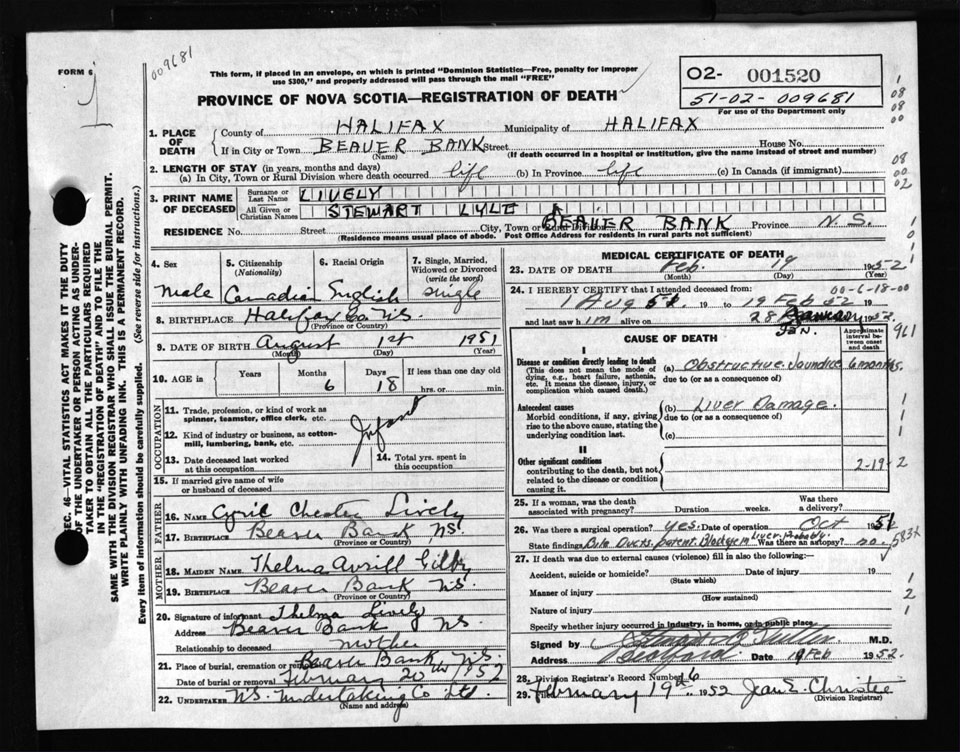 FORM 6
009681
This form, if placed in an envelope, on which is printed "Dominion Statistics—Free, penalty for improper
use $300," and properly addressed will pass through the mail "FREE"
PROVINCE OF NOVA SCOTIA—REGISTRATION OF DEATH
02- 001520
51-02-009681
For use of the Department only
1. PLACE OF DEATH
County of HALIFAX Municipality of HALIFAX
If in City or Town BEAVER BANK Street House No.
(Name) (If death occurred in a hospital or institution, give the name instead of street and number)
2. LENGTH OF STAY (in years, months and days)
(a) In City, Town or Rural Division where death occurred life (b) In Province life (c) In Canada (if immigrant)
3. PRINT NAME OF DECEASED
Surname or Last Name LIVELY
All Given or Christian Names STEWART LYLE
RESIDENCE No. Street City, Town or Rural Division BEAVER BANK Province N.S.
(Residence means usual place of abode. Post Office Address for residents in rural parts not sufficient)
SEC. 46 VITAL STATISTICS ACT MAKES IT THE DUTY
OF THE UNDERTAKER OR PERSON ACTING AS UNDER-
TAKER TO OBTAIN ALL THE PARTICULARS REQUIRED
IN THE "REGISTRATION OF DEATH" AND TO FILE THE
SAME WITH THE DIVISION REGISTRAR WHO SHALL ISSUE THE BURIAL PERMIT.
WRITE PLAINLY WITH UNFADING INK. THIS IS A PERMANENT RECORD.
Every item of information should be carefully supplied. (See reverse side for instructions.)
4. Sex
Male
5. Citizenship (Nationality)
Canadian
6. Racial Origin
English
7. Single, Married, Widowed or Divorced (write the word)
single
8. BIRTHPLACE Halifax Co. N.S.
(Province or Country)
9. DATE OF BIRTH August 1st 1951
(Month) (Day) (Year)
10. AGE in Years Months 6 Days 18 If less than one day old
hrs. or min.
OCCUPATION
11. Trade, profession, or kind of work as
spinner, teamster, office clerk, etc.
Infant
12. Kind of industry or business, as cotton-
mill, lumbering, bank, etc.
13. Date deceased last worked
at this occupation
14. Total yrs. spent in
this occupation
15. If married give name of wife
or husband of deceased
FATHER
16. NAME Cyril Chester Lively
17. BIRTHPLACE Beaver Bank NS.
(Province or Country)
MOTHER
18. MAIDEN NAME Thelma Avrill Gilby
19. BIRTHPLACE Beaver Bank NS.
(Province or Country)
20. Signature of informant Thelma Lively
Address Beaver Bank N.S.
Relationship to deceased mother
21. Place of burial, cremation or removal Beaver Bank N.S.
Date of burial or removal February 20th 1952
22. UNDERTAKER N.S. Undertaking Co Ltd.
(Name and address)
MEDICAL CERTIFICATE OF DEATH
23. DATE OF DEATH Feb. 19 1952
(Month) (Day)
24. I HEREBY CERTIFY that I attended deceased from: 00-6-18-00
1 Aug 51 19 to 19 Feb 52 19
and last saw him alive on 28 Jan. 1952
961
CAUSE OF DEATH
Approximate interval between onset and death
I
Disease or condition directly leading to death
(This does not mean the mode of
dying, e.g., heart failure, asthenia,
etc. It means the disease, injury, or
complication which caused death.)
(a) Obstructive Jaundice 6 months.
due to (or as a consequence of)
Antecedent causes
Morbid conditions, if any, giving
rise to the above cause, stating the
underlying condition last.
(b) Liver Damage.
due to (or as a consequence of)
(c)
II
Other significant conditions
contributing to the death, but not
related to the disease or condition
causing it.
2-19-2
25. If a woman, was the death
associated with pregnancy? Duration weeks. Was there
a delivery?
26. Was there a surgical operation? Yes. Date of operation Oct 51
State findings Bile Ducts patent. Blockage in Liver Probably. Was there an autopsy? no
583x
27. If death was due to external causes (violence) fill in also the following:
Accident, suicide or homicide? Date of injury 19
(State which)
Manner of injury
(How sustained)
Nature of injury
Specify whether injury occurred in industry, in home, or in public place
Signed by M.D.
Address Bedford. Date 19 Feb 1952.
28. Division Registrar's Record Number 6
29. Filed February 19th 1952 Jean E. Christie
(Division Registrar)